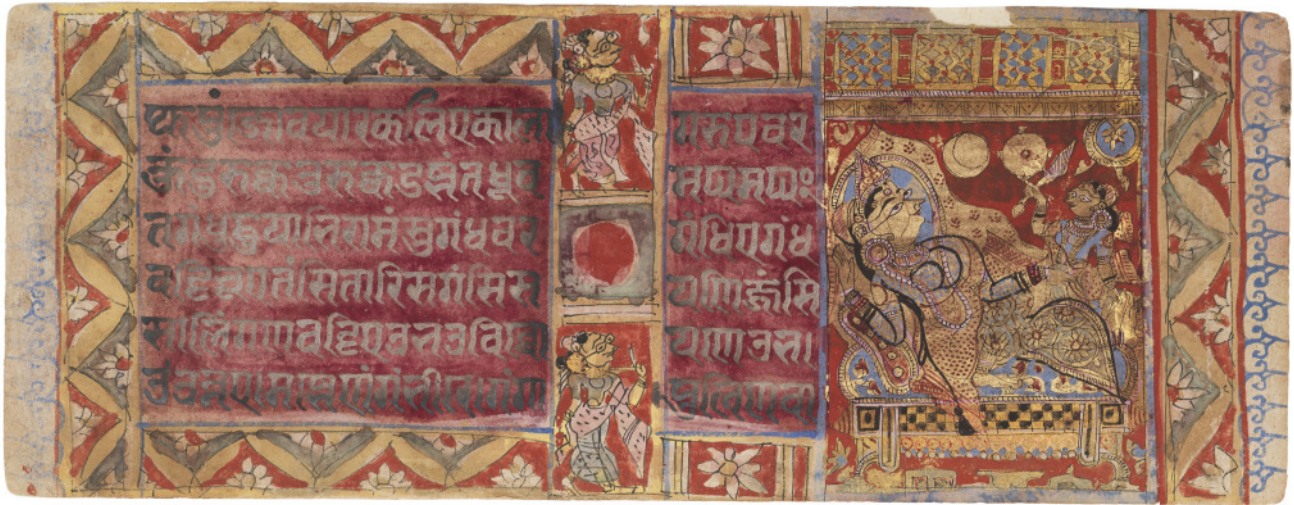 प्फपुंजोवयारकलिएकाला गरुपवर
कुंडुरुक्कतुरुक्कडझंतधूव मघमघं
तगंधुद्धुयाभिरामंसुगंधवर गंधिएगंध
वट्टिभूएतंसितारिसगंसिस यणिज्जंसि
सालिंगणवट्टिएउभउविब्बो यणेउभउ
उन्नएमज्झेणयगंभीरेगंगा पुलिणवा